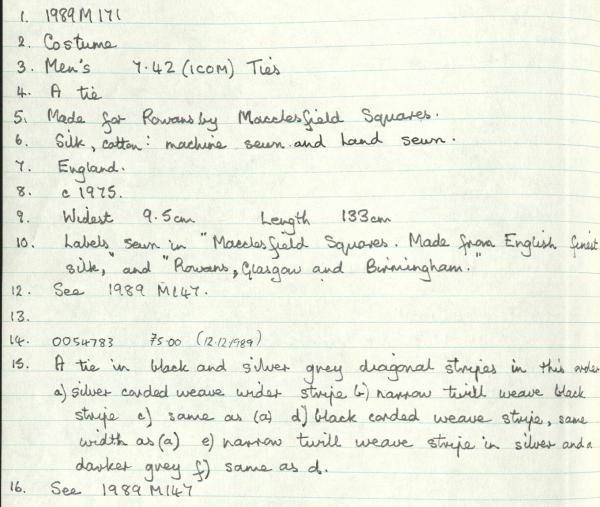 1. 1989 M 171
2. Costume
3. Men's 7.42 (ICOM) Ties
4. A tie
5. Made for Rowans by Macclesfield Squares.
6. Silk, cotton: machine sewn and hand sewn.
7. England.
8. c 1975.
9. Widest 9.5cm Length 133cm
10. Labels sewn in "Macclesfield Squares. Made from English finest
silk," and "Rowans, Glasgow and Birmingham."
12. See 1989 M147.
13.
14. 0054783 75.00 (12.12.1989)
15. A tie in black and silver grey diagonal stripes in this order
a) silver corded weave wider stripe b) narrow twill weave black
stripe c) same as (a) d) black corded weave stripe, same
width as (a) e) narrow twill weave stripe in silver and a
darker grey f) same as d.
16. See 1989 M147